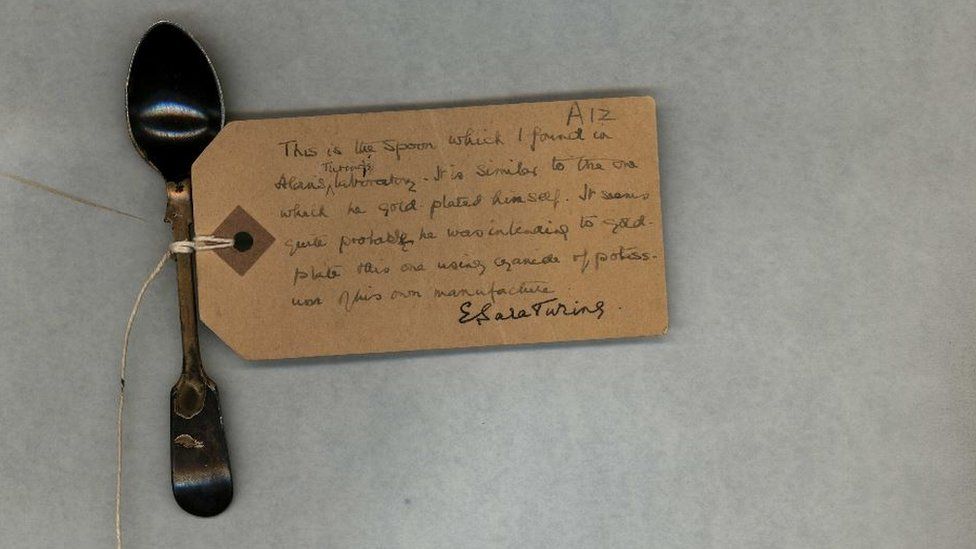 A12
This is the spoon which I found in
Turing's
Alan's laboratory. It is similar to the one
which he gold plated himself. It seems
quite probable he was intending to gold-
plate this one using cyanide of potass-
ium of his own manufacture.
E. Sara Turing.